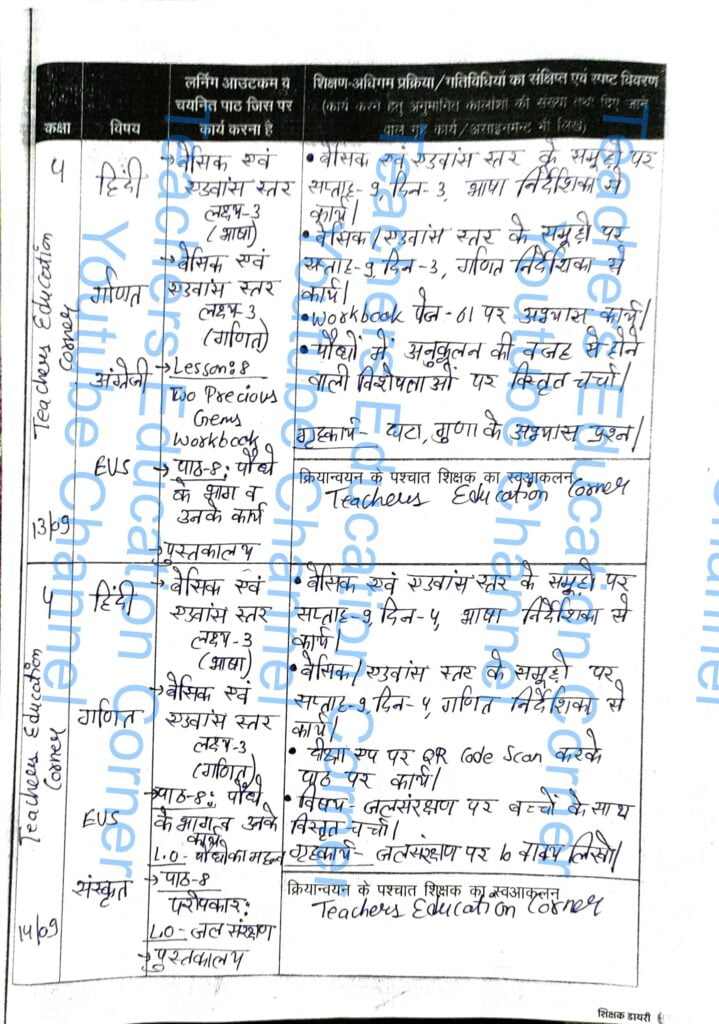 लर्निंग आउटकम व
चयनित पाठ जिस पर
कार्य करना है
शिक्षण-अधिगम प्रक्रिया/गतिविधियों का संक्षिप्त एवं स्पष्ट विवरण
(कार्य करने हेतु अनुमानित कालांश की संख्या तथा दिए जाने
वाले गृह कार्य/असाइनमेन्ट भी लिखें)
कक्षा
विषय
5
हिंदी
→ बेसिक एवं
एडवांस स्तर
लक्ष्य-3
(भाषा)
गणित
→ बेसिक एवं
एडवांस स्तर
लक्ष्य-3
(गणित)
अंग्रेजी
→ Lesson: 8
Two Precious
Gems
Workbook
EVS
→ पाठ-8: पौधे
के भाग व
उनके कार्य
→ पुस्तकालय
13/09
• बेसिक एवं एडवांस स्तर के समूहों पर
सप्ताह-9, दिन-3, भाषा निर्देशिका से
कार्य।
• बेसिक/एडवांस स्तर के समूहों पर
सप्ताह-9, दिन-3, गणित निर्देशिका से
कार्य।
• Workbook पेज-61 पर अभ्यास कार्य।
• पौधों में अनुकूलन की वजह से होने
वाली विशेषताओं पर विस्तृत चर्चा।
गृहकार्य- घटा, गुणा के अभ्यास प्रश्न।
क्रियान्वयन के पश्चात शिक्षक का स्वआकलन
Teachers Education Corner
Teachers Education
Corner
5
हिंदी
→ बेसिक एवं
एडवांस स्तर
लक्ष्य-3
(भाषा)
गणित
→ बेसिक एवं
एडवांस स्तर
लक्ष्य-3
(गणित)
EVS
→ पाठ-8: पौधे
के भाग व उनके
कार्य
L.O- पौधों का महत्व
संस्कृत
→ पाठ-8
परोपकार:
L.O- जल संरक्षण
→ पुस्तकालय
14/09
• बेसिक एवं एडवांस स्तर के समूहों पर
सप्ताह-9, दिन-4, भाषा निर्देशिका से
कार्य।
• बेसिक/एडवांस स्तर के समूहों पर
सप्ताह-9, दिन-4, गणित निर्देशिका से
कार्य।
• दीक्षा एप पर QR Code Scan करके
पाठ पर कार्य।
• विषय- जलसंरक्षण पर बच्चों के साथ
विस्तृत चर्चा।
गृहकार्य- जलसंरक्षण पर 10 वाक्य लिखो।
क्रियान्वयन के पश्चात शिक्षक का स्वआकलन
Teachers Education Corner
Teachers Education
Corner
Teachers Education Corner
Youtube Channel
Teachers Education Corner
Youtube Channel
Teachers Education Corner
Youtube Channel
शिक्षक डायरी